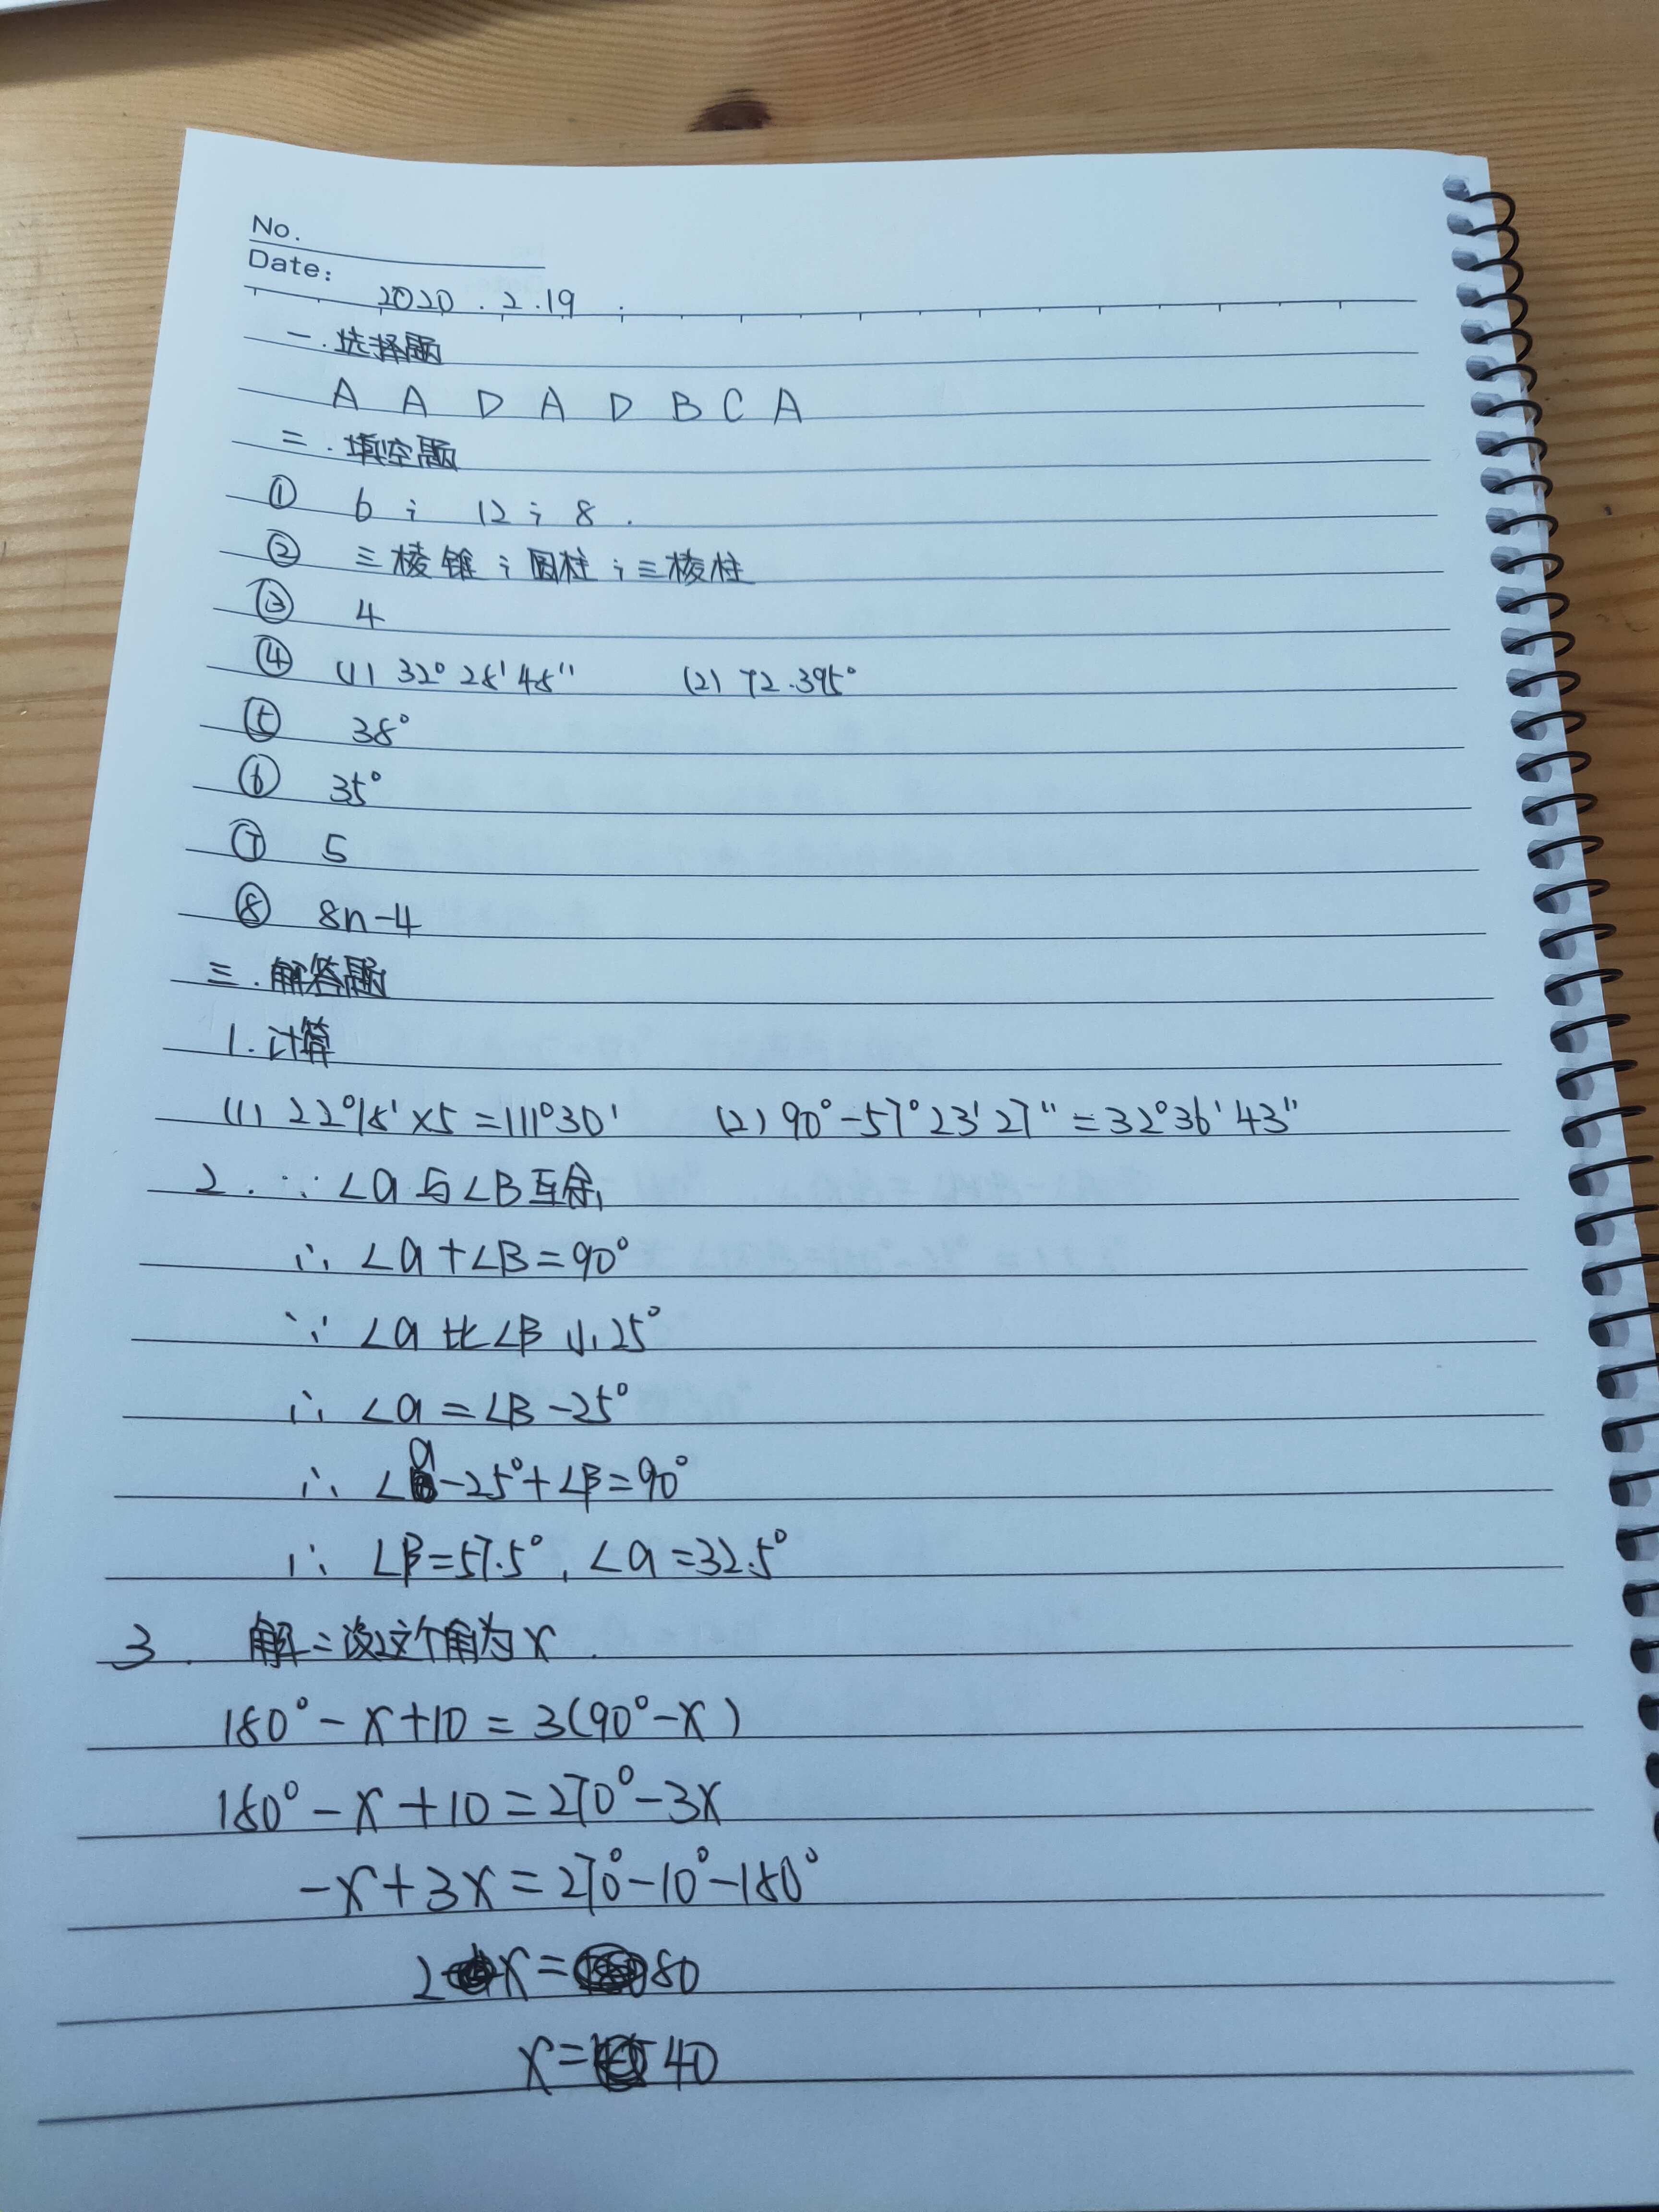 No.
Date:
2020.2.19.
一.选择题
A A D A D B C A
二.填空题
① 6; 12; 8.
② 三棱锥;圆柱;三棱柱
③ 4
④ (1) 32°28'48" (2) 72.395°
⑤ 38°
⑥ 35°
⑦ 5
⑧ 8n-4
三.解答题
1.计算
(1) 22°18'×5=111°30' (2) 90°-57°23'27"=32°36'43"
2. ∵ ∠a与∠B互余,
∴ ∠a+∠B=90°
∵ ∠a比∠B小25°
∴ ∠a=∠B-25°
∴ ∠a-25°+∠B=90°
∴ ∠B=57.5°,∠a=32.5°
3. 解:设这个角为x.
180°-x+10=3(90°-x)
180°-x+10=270°-3x
-x+3x=270°-10°-180°
2x=80
x=40